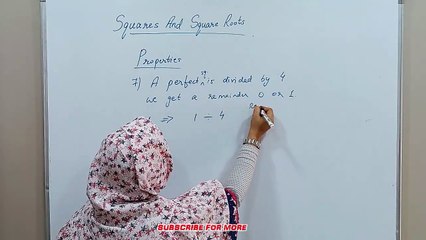 Squares And Square Roots.
Properties
7) A perfect sq n is divided by 4
we get a remainder 0 or 1
⇒ 1 ÷ 4
SUBSCRIBE FOR MORE